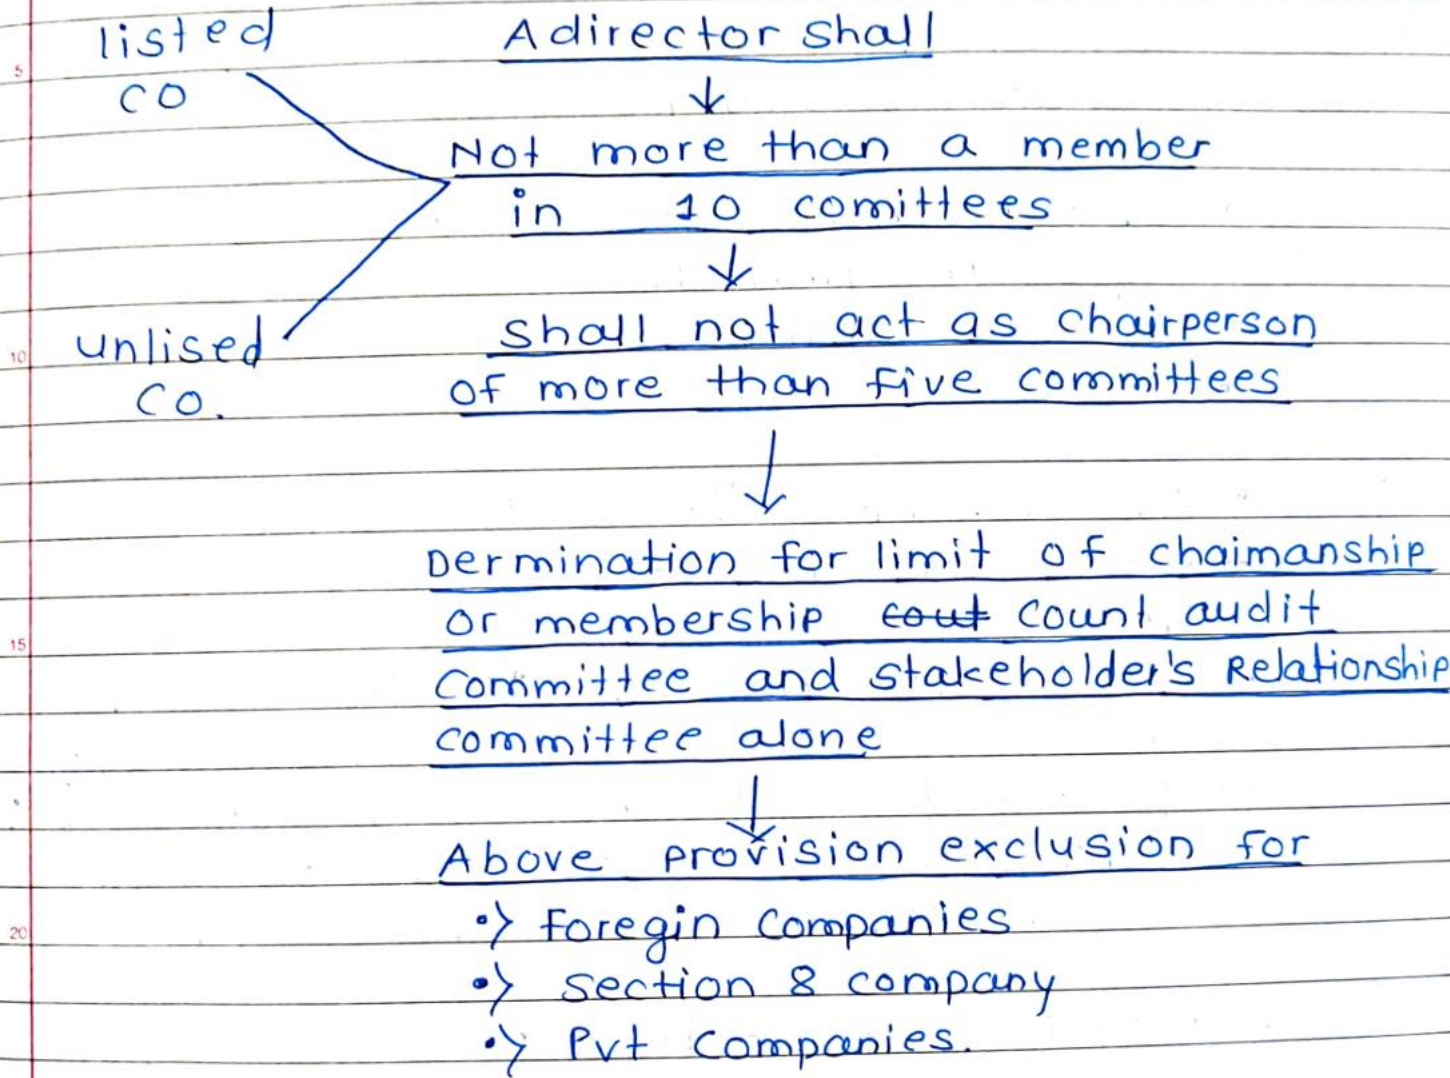 listed
CO
A director shall
Not more than a member
in 10 comittees
unlised
CO.
shall not act as chairperson
of more than five committees
Dermination for limit of chaimanship
or membership cout count audit
committee and stakeholder's Relationship
committee alone
Above provision exclusion for
•> foregin companies
•> section 8 company
•> Pvt companies.
5
10
15
20